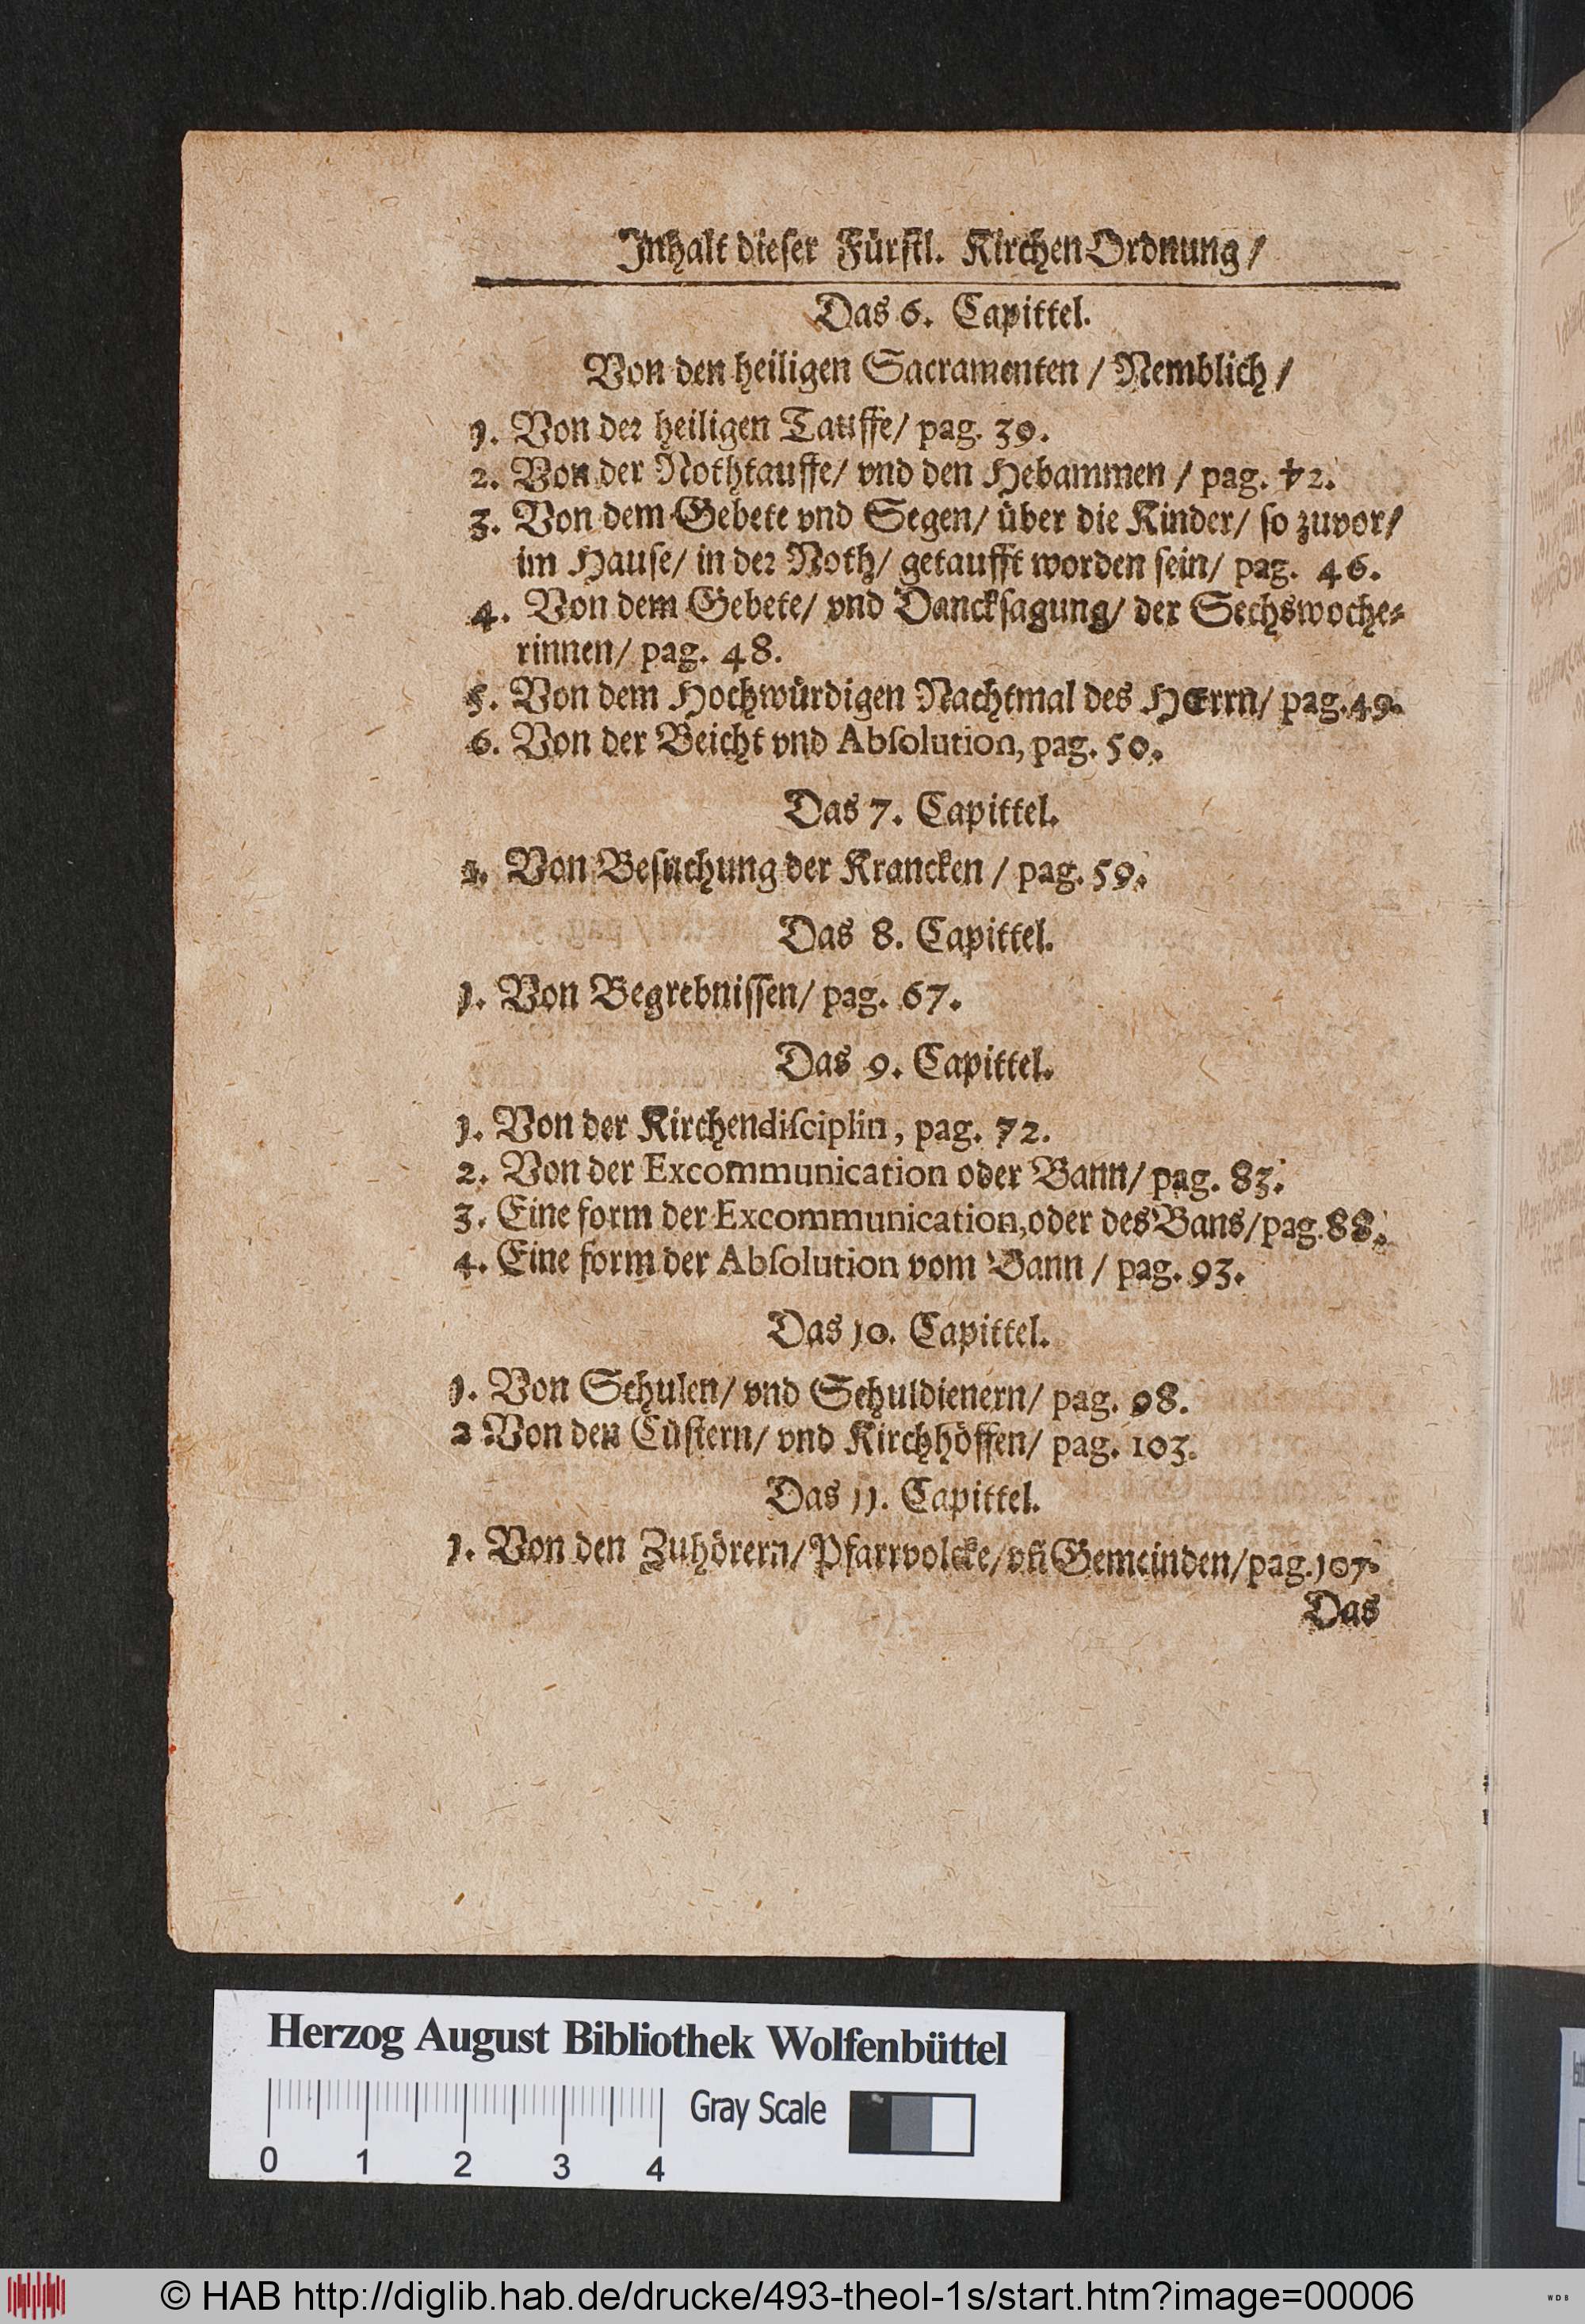 Inhalt dieſer Fürſtl. KirchenOrdnung /
Das 6. Capittel.
Von den heiligen Sacramenten / Nemblich /
1. Von der heiligen Tauffe/ pag. 39.
2. Von der Nothtauffe/ vnd den Hebammen / pag. 42.
3. Von dem Gebete vnd Segen/ über die Kinder/ ſo zuvor/
im Hauſe/ in der Noth/ getaufft worden ſein/ pag. 46.
4. Von dem Gebete/ vnd Danckſagung/ der Sechswoche⸗
rinnen/ pag. 48.
5. Von dem Hochwürdigen Nachtmal des HErrn/ pag. 49.
6. Von der Beicht vnd Abſolution, pag. 50.
Das 7. Capittel.
1. Von Beſuchung der Krancken / pag. 59.
Das 8. Capittel.
1. Von Begrebniſſen/ pag. 67.
Das 9. Capittel.
1. Von der Kirchendiſciplin, pag. 72.
2. Von der Excommunication oder Bann/ pag. 83.
3. Eine form der Excommunication, oder des Bans/ pag. 88.
4. Eine form der Abſolution vom Bann / pag. 93.
Das 10. Capittel.
1. Von Schulen/ vnd Schuldienern/ pag. 98.
2 Von den Cüſtern/ vnd Kirchhöffen/ pag. 103.
Das 11. Capittel.
1. Von den Zuhörern/ Pfarrvolcke/ vñ Gemeinden/ pag. 107.
Das
Herzog August Bibliothek Wolfenbüttel
Gray Scale
0 1 2 3 4
© HAB http://diglib.hab.de/drucke/493-theol-1s/start.htm?image=00006
WDB